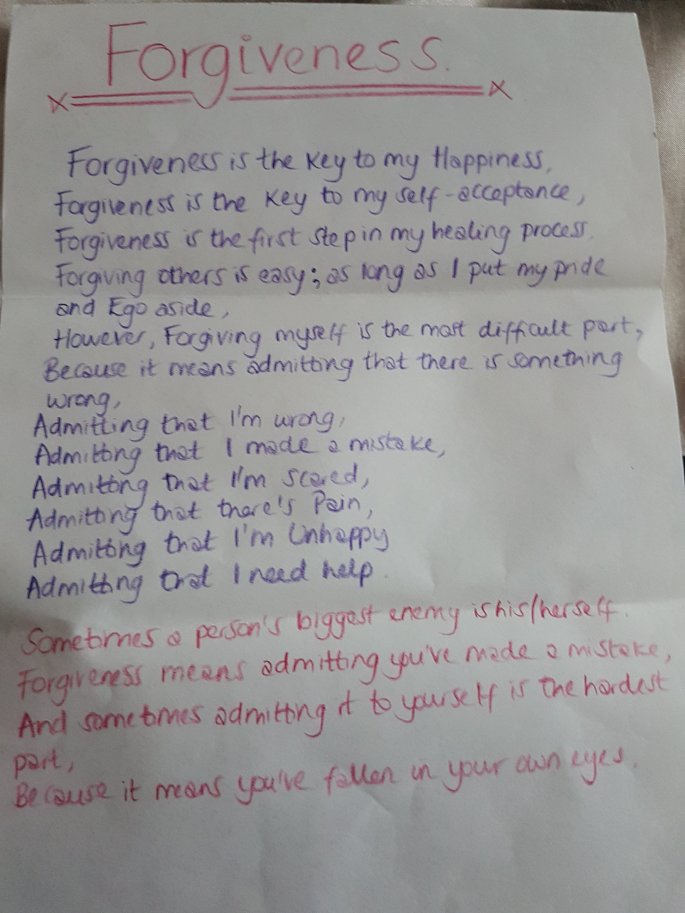 Forgiveness.
Forgiveness is the key to my Happiness,
Forgiveness is the key to my self-acceptance,
Forgiveness is the first step in my healing process.
Forgiving others is easy; as long as I put my pride
and Ego aside,
However, Forgiving myself is the most difficult part,
Because it means admitting that there is something
wrong,
Admitting that I'm wrong,
Admitting that I made a mistake,
Admitting that I'm scared,
Admitting that there's Pain,
Admitting that I'm Unhappy
Admitting that I need help.
Sometimes a person's biggest enemy is his/herself.
Forgiveness means admitting you've made a mistake,
And sometimes admitting it to yourself is the hardest
part,
Because it means you've fallen in your own eyes.